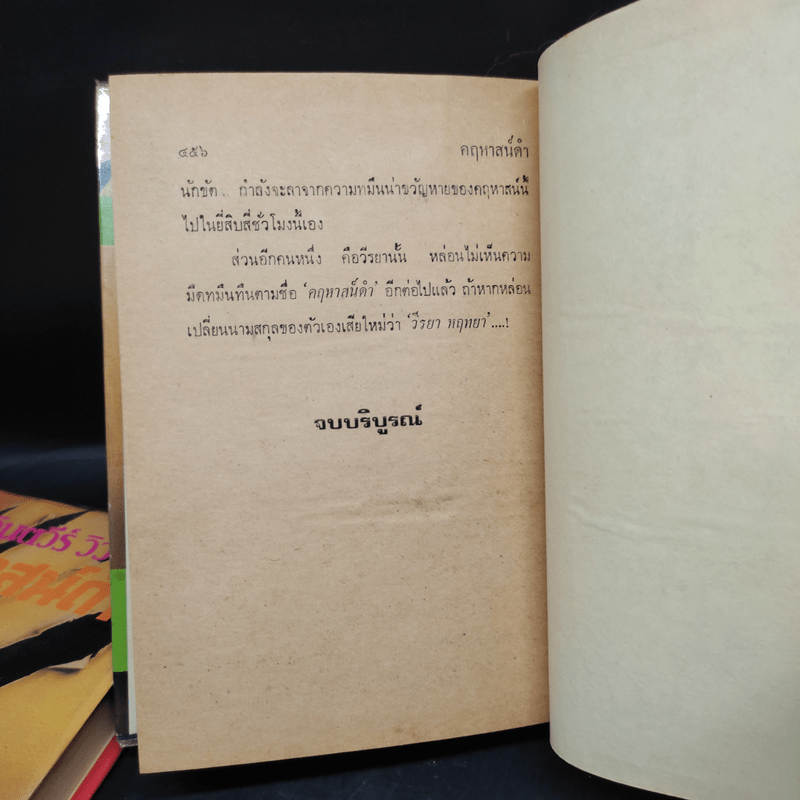 ๔๕๖ คฤหาสน์ดำ
นักขัต.. กำลังจะลาจากความทมึนน่าขวัญหายของคฤหาสน์นี้
ไปในยี่สิบสี่ชั่วโมงนี้เอง
ส่วนอีกคนหนึ่ง คือวีรยานั้น หล่อนไม่เห็นความ
มืดทมึนทึนตามชื่อ ‘คฤหาสน์ดำ’ อีกต่อไปแล้ว ถ้าหากหล่อน
เปลี่ยนนามสกุลของตัวเองเสียใหม่ว่า ‘วีรยา หฤทยา’....!
จบบริบูรณ์